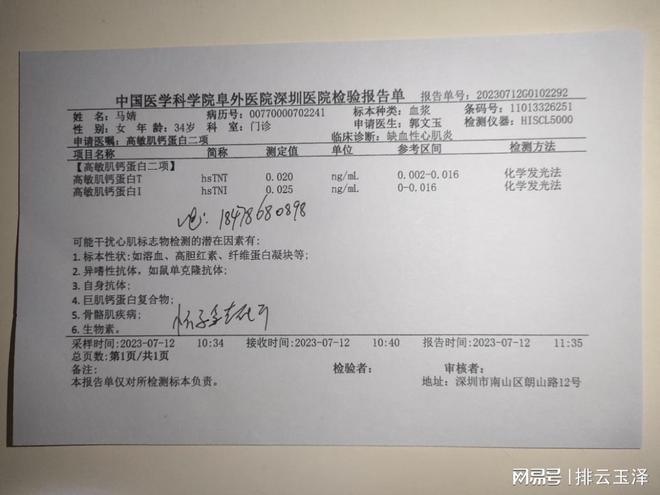 中国医学科学院阜外医院深圳医院检验报告单 报告单号: 20230712G0102292
姓 名: 马婧 病历号: 00770000702241 标本种类: 血浆 条码号: 11013326251
性 别: 女 年 龄: 34岁 科 室: 门诊 申请医生: 郭文玉 检测仪器: HISCL5000
申请医嘱: 高敏肌钙蛋白二项 临床诊断: 缺血性心肌炎
项目名称 简称 测定值 单位 参考区间 检测方法
【高敏肌钙蛋白二项】
高敏肌钙蛋白T hsTNT 0.020 ng/mL 0.002-0.016 化学发光法
高敏肌钙蛋白I hsTNI 0.025 ng/mL 0-0.016 化学发光法
18478680898
可能干扰心肌标志物检测的潜在因素有:
1. 标本性状:如溶血、高胆红素、纤维蛋白凝块等;
2. 异嗜性抗体，如鼠单克隆抗体;
3. 自身抗体;
4. 巨肌钙蛋白复合物;
5. 骨骼肌疾病;
6. 生物素。
采样时间:2023-07-12 10:34 接收时间:2023-07-12 10:40 报告时间:2023-07-12 11:35
总页数:第1页/共1页
备注: 检验者: 审核者:
本报告单仅对所检测标本负责。 地址: 深圳市南山区朗山路12号
网易号 | 排云玉泽